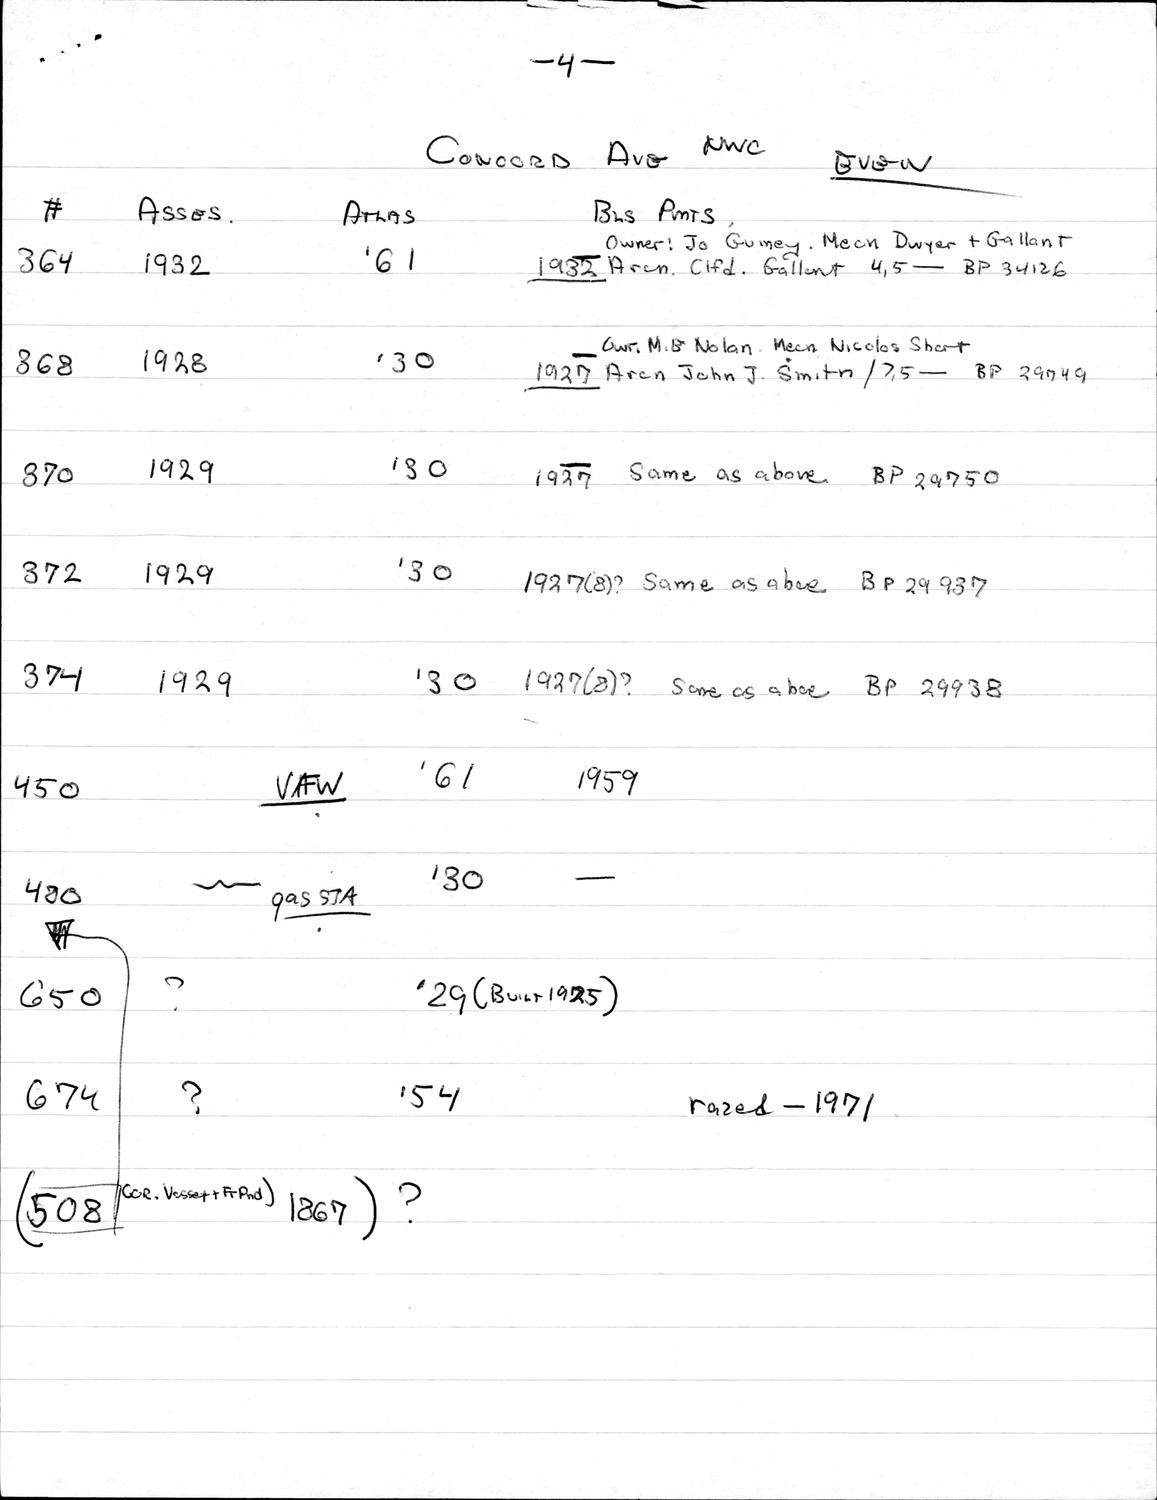 —4—
CONCORD AVE NWC EVEN
# ASSES. ATLAS BLS PMTS.
Owner: Jo Gurney. Mech Dwyer + Gallant
364 1932 '61 1932 Arch. Clfd. Gallant 4,5— BP 34126
Owr. M.B Nolan. Mech Nicolos Short
368 1928 '30 1927 Arch John J. Smith /7,5— BP 29749
370 1929 '30 1927 Same as above. BP 29750
372 1929 '30 1927(8)? Same as aboe BP 29937
374 1929 '30 1927(8)? Same as aboe BP 29938
450 VFW '61 1959
480 gas STA '30 —
650 ? '29 (BUILT 1925)
674 ? '54 razed — 1971
(508 (COR. Vassey + Fr Pnd) 1867) ?